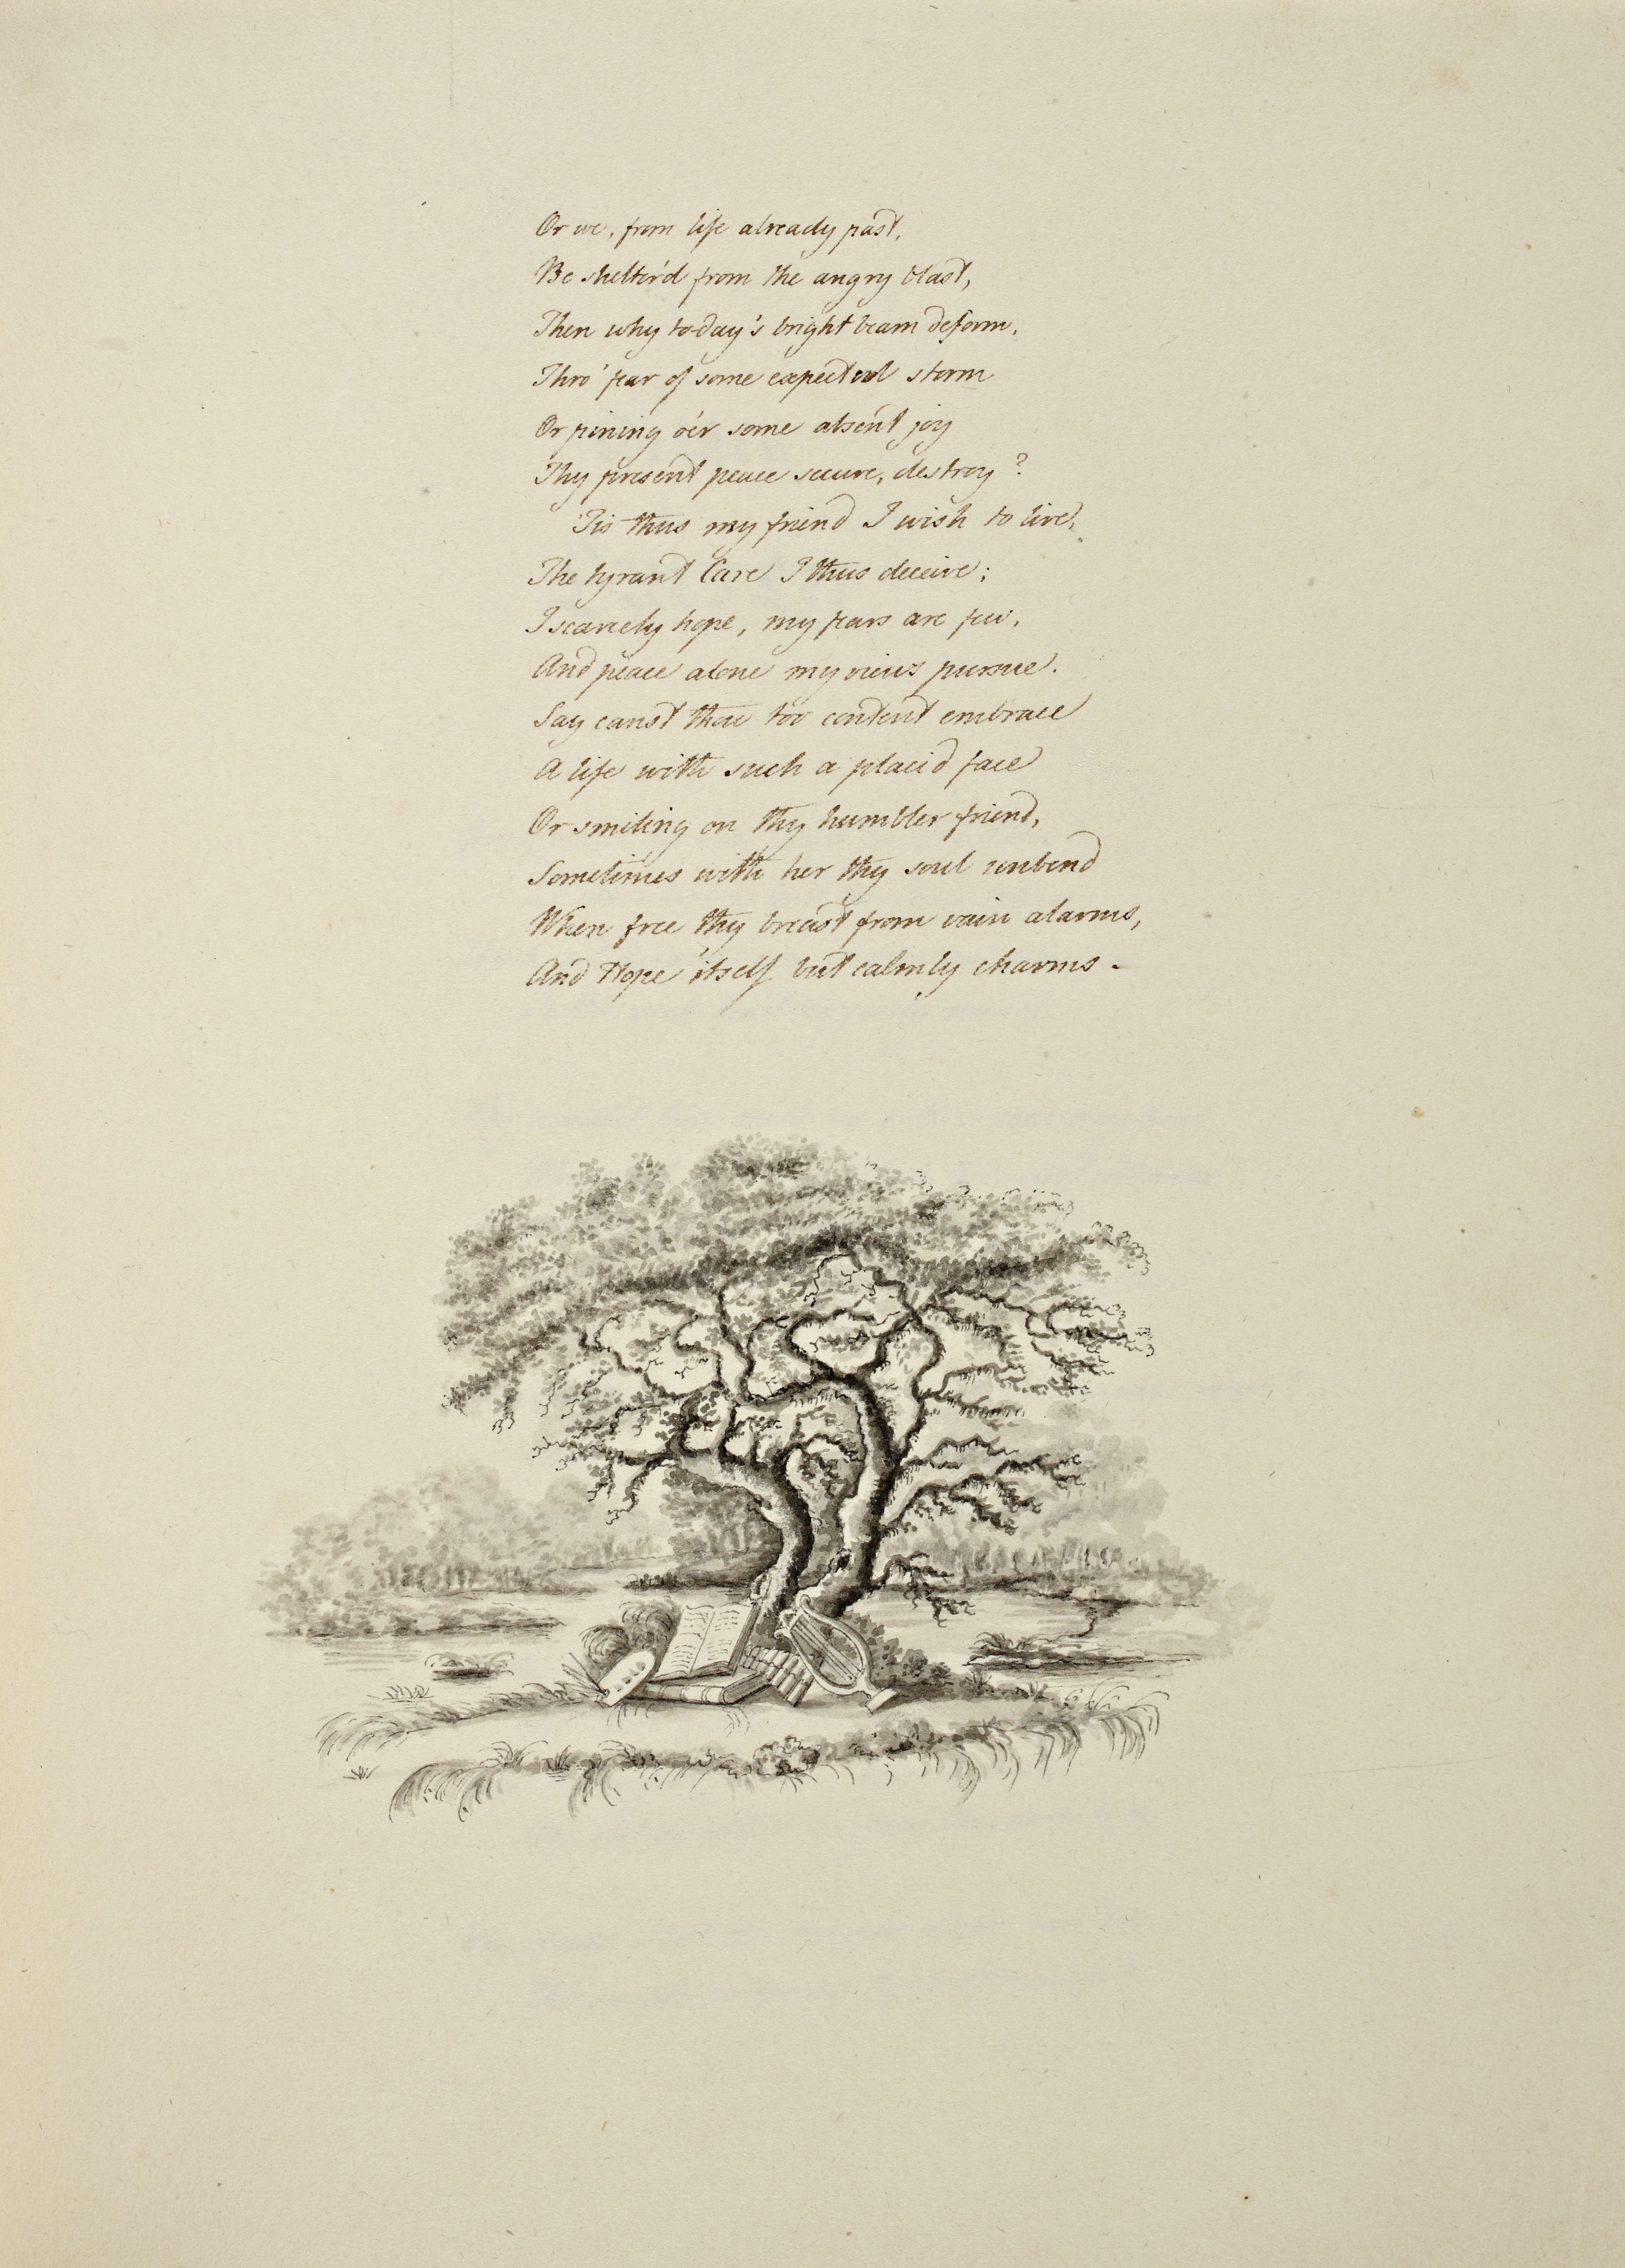 Or we, from life already past,
Be shelter'd from the angry blast,
Then why to-day's bright beam deform,
Thro' fear of some expected storm
Or pining o'er some absent joy
Thy present peace secure, destroy?
'Tis thus my friend I wish to live,
The tyrant Care I thus deceive;
I scarcely hope, my fears are few,
And peace alone my views pursue.
Say canst thou too content embrace
A life with such a placid face
Or smiling on thy humbler friend,
Sometimes with her thy soul unbend
When free thy breast from vain alarms,
And Hope itself but calmly charms -